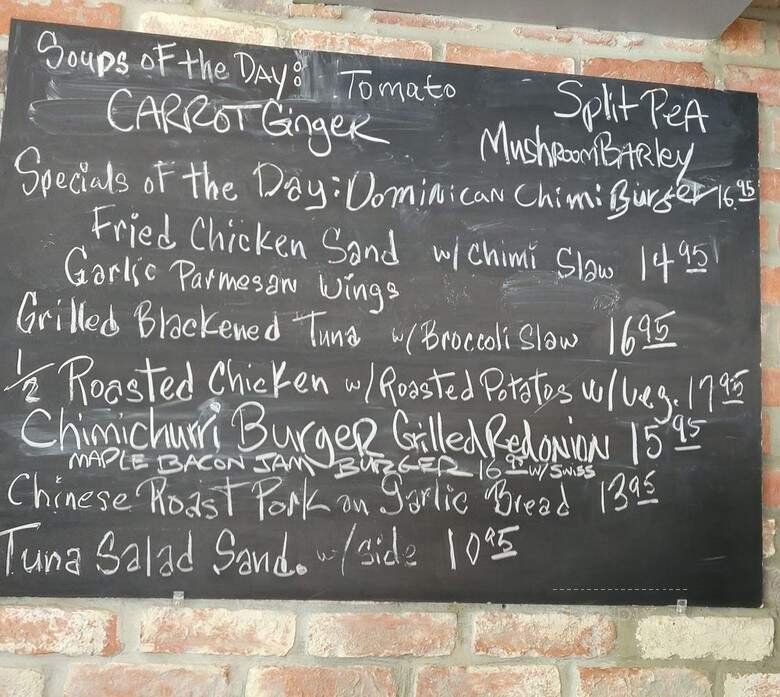 Soups of the Day: Tomato Split Pea
Carrot Ginger Mushroom Barley
Specials of the Day: Dominican Chimi Burger 16.95
Fried Chicken Sand w/ Chimi Slaw 14 95
Garlic Parmesan Wings
Grilled Blackened Tuna w/ Broccoli Slaw 16 95
1/2 Roasted Chicken w/ Roasted Potatos w/ Veg. 17 95
Chimichurri Burger Grilled Red onion 15 95
MAPLE BACON JAM BURGER 16 95 w/ Swiss
Chinese Roast Pork on Garlic Bread 13 95
Tuna Salad Sand. w/ side 10 95